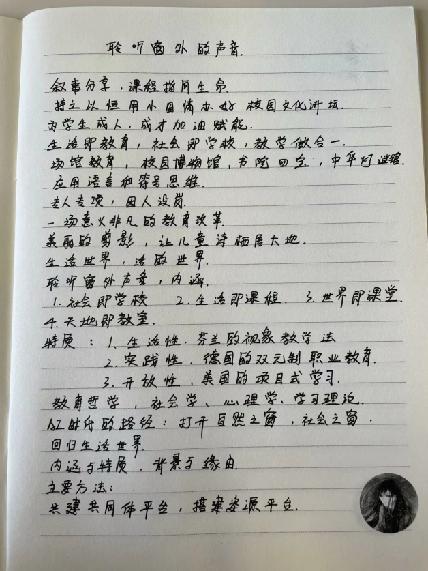 聆听窗外的声音.
叙事分享,课程指向生命.
持之以恒用小日情怀办好校园文化讲坛
为学生成人,成才加油赋能.
生活即教育,社会即学校,教学做合一.
场馆教育,校园博物馆,书院四堂,中华灯谜馆
应用语言和符号思维.
专人专项,因人设岗
一场意义非凡的教育改革.
美丽的剪影,让儿童诗栖居大地.
生活世界,活的世界.
聆听窗外声音,内涵.
1.社会即学校 2.生活即课程. 3.世界即课堂
4.天地即教室.
特质:1.生活性.芬兰的现象教学法
2.实践性.德国的双元制职业教育.
3.开放性.美国的项目式学习.
教育哲学,社会学、心理学、学习理论.
AI时代的路径:打开自然之窗,社会之窗.
回归生活世界.
内涵与特质,背景与缘由
主要方法:
共建共同体平台,搭建资源平台.